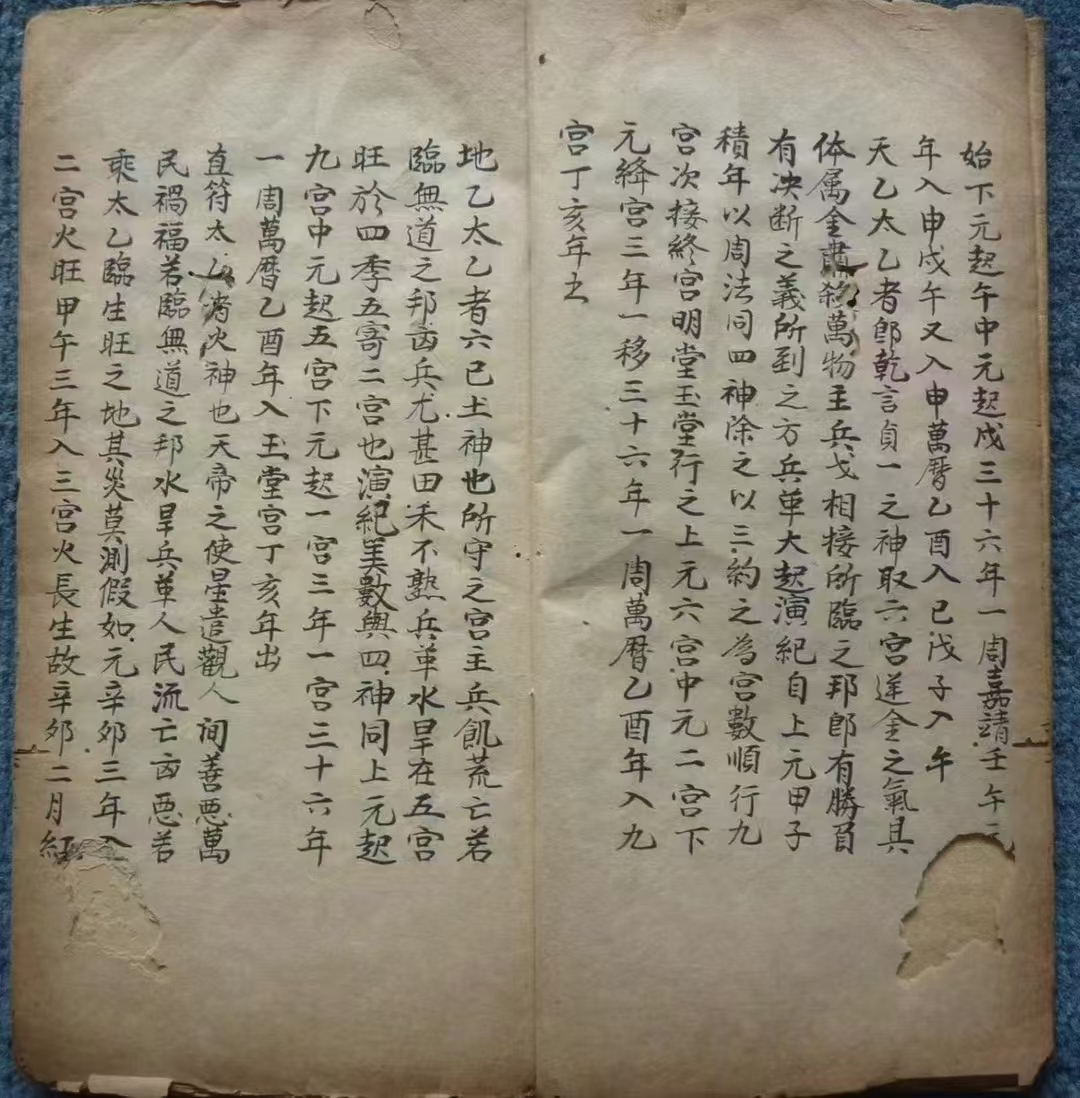 始下元起午中元起戍三十六年一周嘉靖壬午三
年入申戍午又入申萬暦乙酉入巳戊子入午
天乙太乙者郎乾言貞一之神取六宫送金之氣具
体属金肅殺萬物主兵戈相接所臨之邦郎有勝負
有决断之義所到之方兵革大起演紀自上元甲子
積年以周法同四神除之以三約之為宫數順行九
宫次接終宫明堂玉堂行之上元六宫中元二宫下
元絳宫三年一移三十六年一周萬暦乙酉年入九
宫丁亥年出
地乙太乙者六已土神也所守之宫主兵飢荒亡若
臨無道之邦凶兵尤甚田禾不熟兵革水旱在五宫
旺於四季五寄二宫也演紀美數與四神同上元起
九宫中元起五宫下元起一宫三年一宫三十六年
一周萬暦乙酉年入玉堂宫丁亥年出
直符太乙者火神也天帝之使星遣觀人间善悪萬
民禍福若臨無道之邦水旱兵革人民流亡凶悪若
乘太乙臨生旺之地其災莫測假如元辛夘三年入
二宫火旺甲午三年入三宫火長生故辛夘二月紅